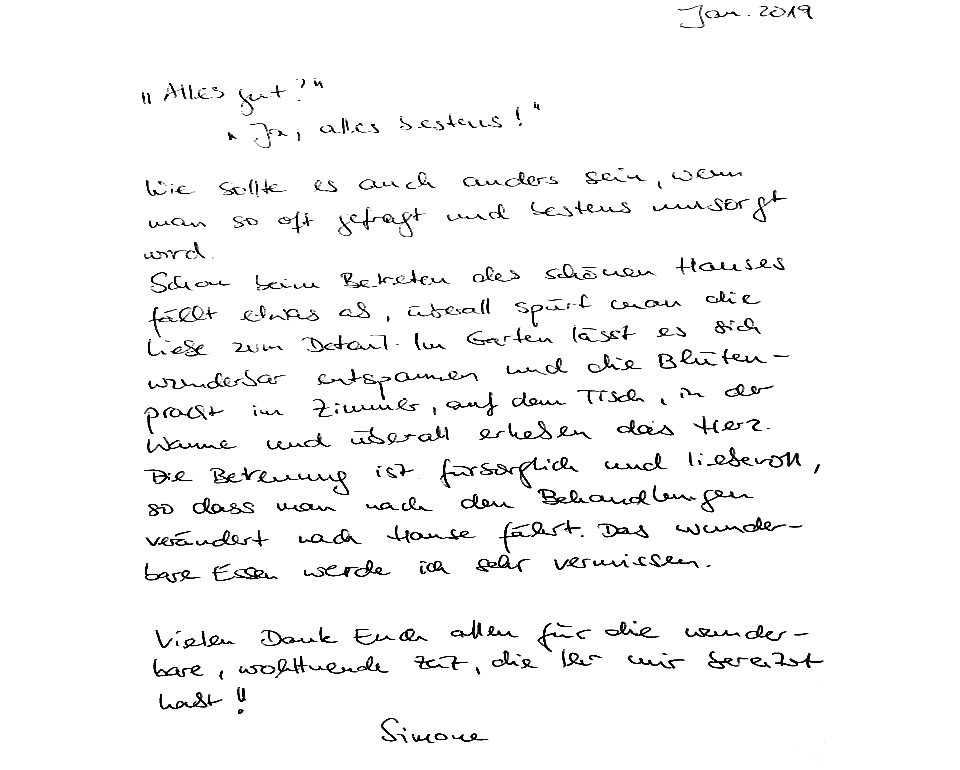 Jan. 2019
"Alles gut?"
"Ja, alles bestens!"
Wie sollte es auch anders sein, wenn
man so oft gefragt und bestens umsorgt
wird.
Schon beim Betreten des schönen Hauses
fällt etwas ab, überall spürt man die
Liebe zum Detail. Im Garten lässt es sich
wunderbar entspannen und die Blüten-
pracht im Zimmer, auf dem Tisch, in der
Wanne und überall erheben das Herz.
Die Betreuung ist fürsorglich und liebevoll,
so dass man nach den Behandlungen
verändert nach Hause fährt. Das wunder-
bare Essen werde ich sehr vermissen.
Vielen Dank Euch allen für die wunder-
bare, wohltuende Zeit, die Ihr mir bereitet
habt!!
Simone